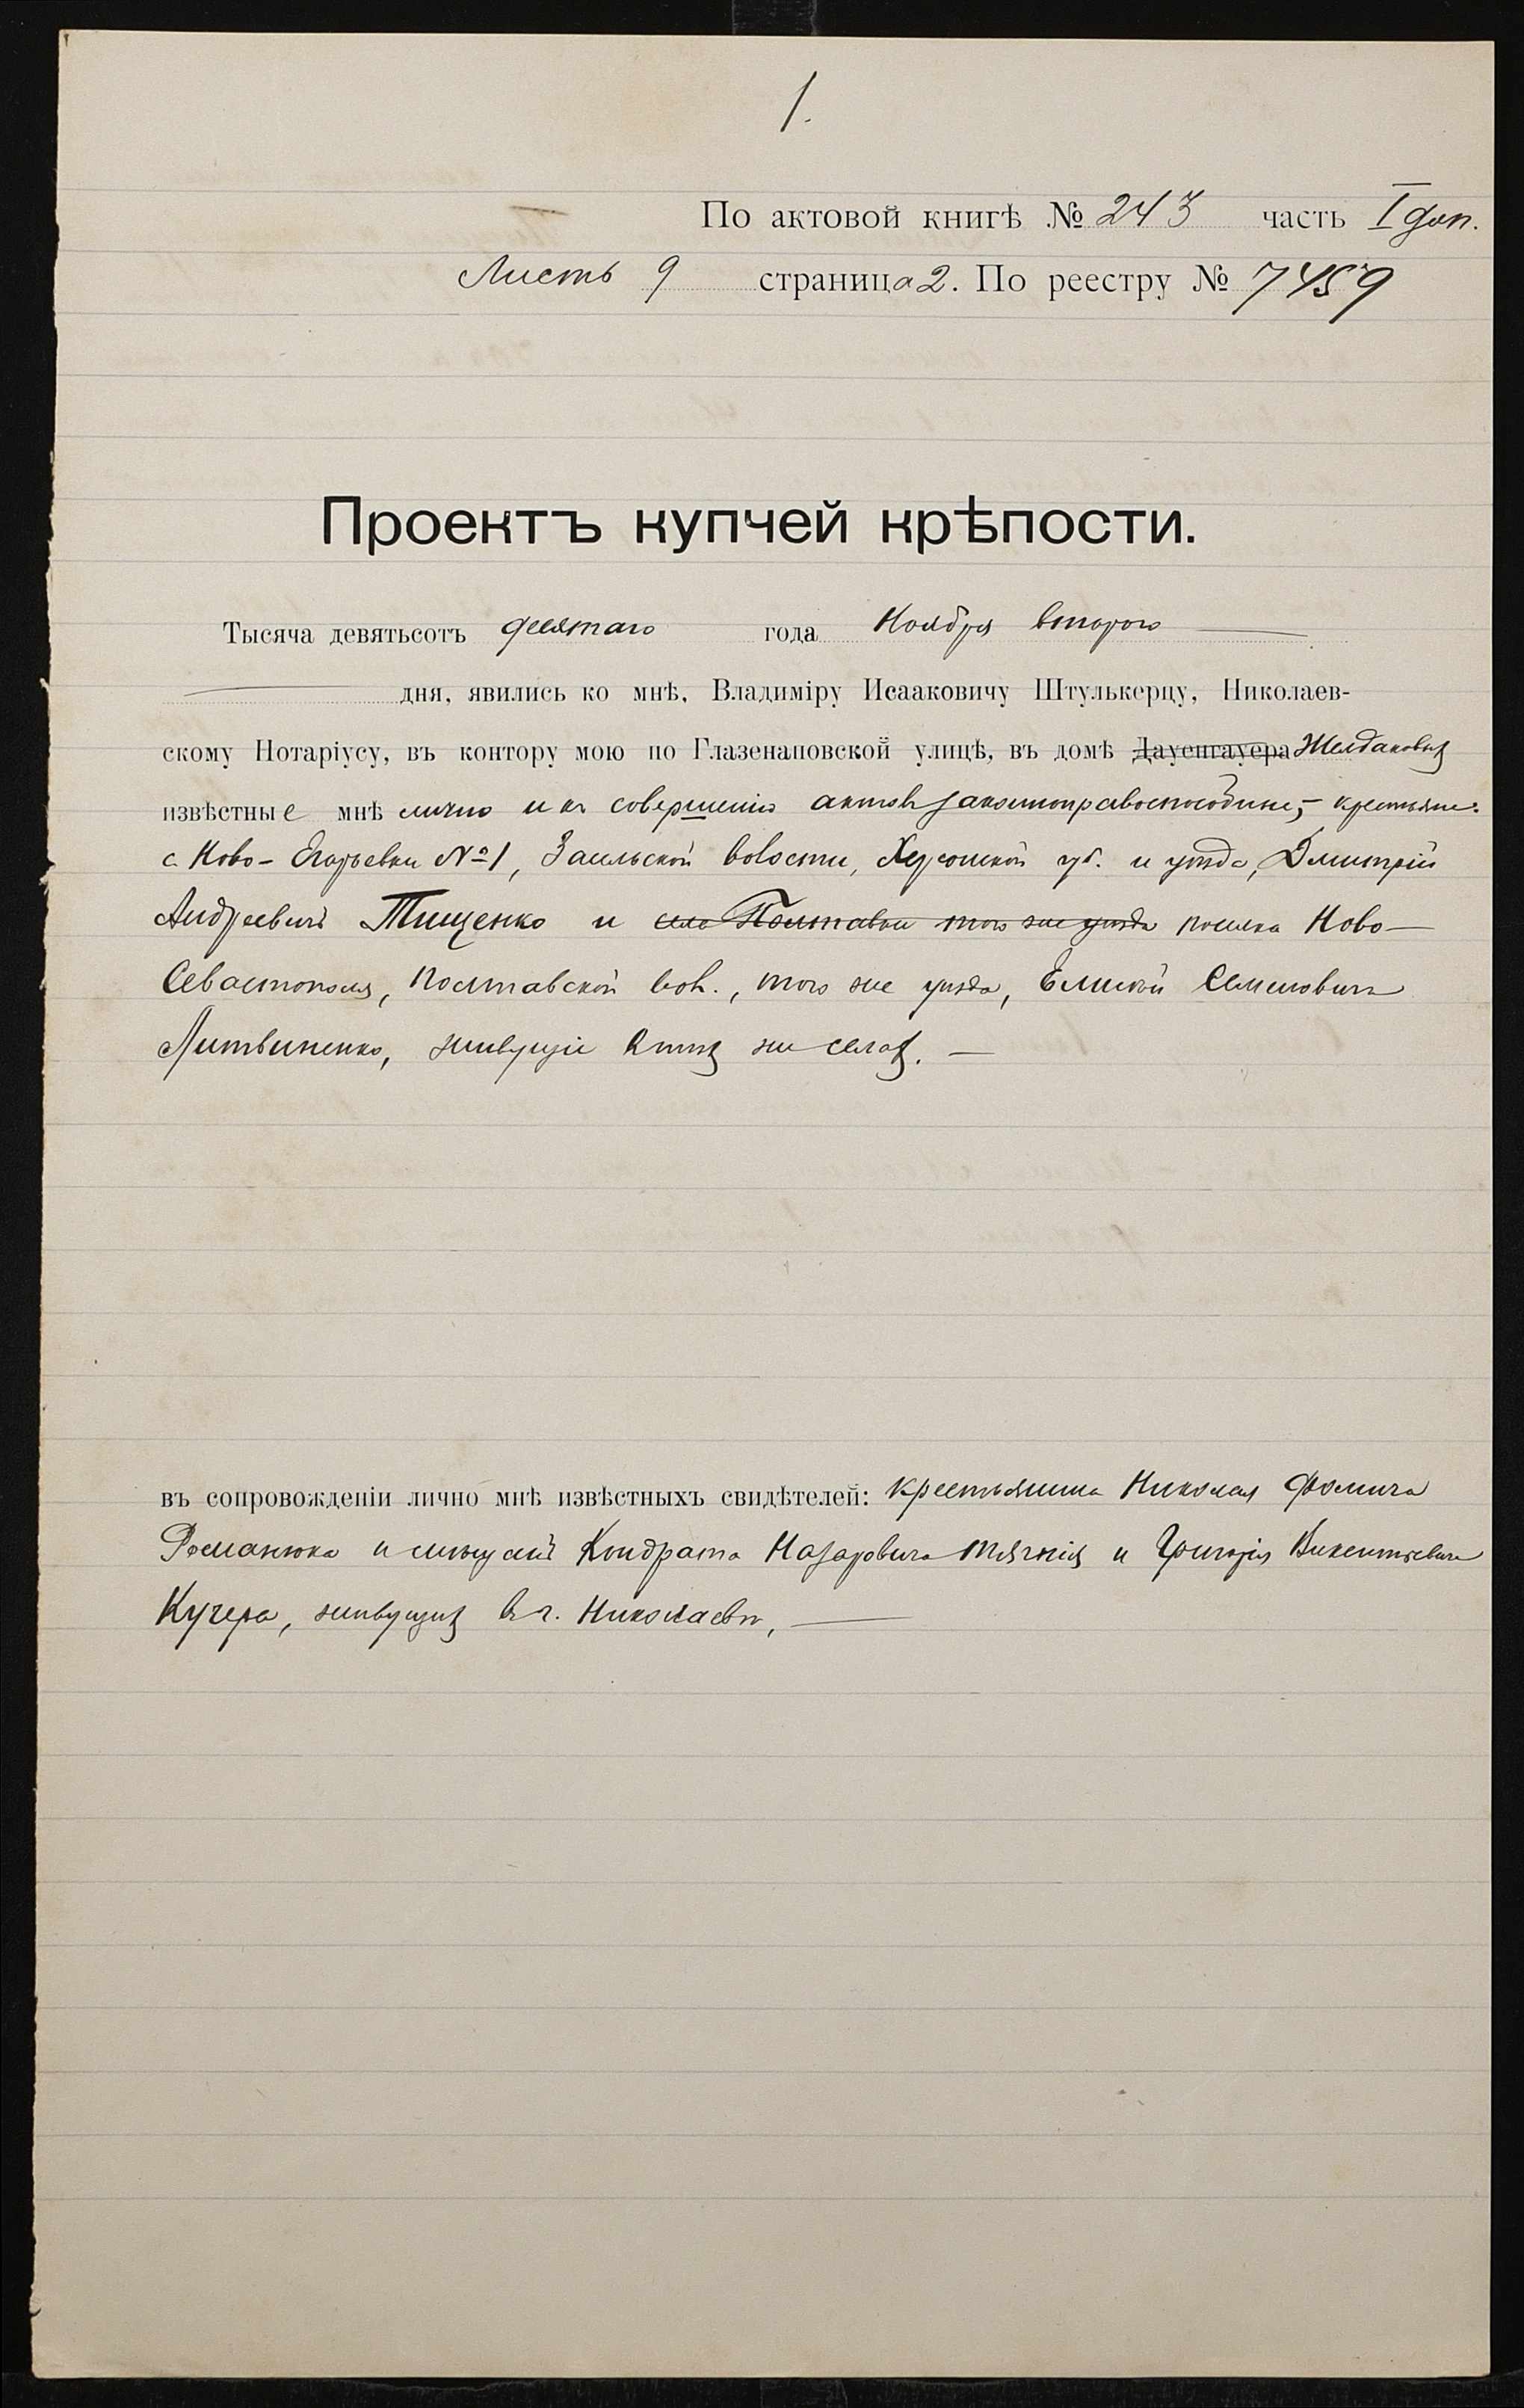 1.
По актовой книгѣ № 243 часть I доп.
Листъ 9 страница 2. По реестру № 7459
Проектъ купчей крѣпости.
Тысяча девятьсотъ десятаго года Ноября второго
дня, явились ко мнѣ, Владиміру Исааковичу Штулькерцу, Николаев-
скому Нотаріусу, въ контору мою по Глазенаповской улицѣ, въ домѣ Дауенгауера
извѣстные мнѣ лично и къ совершенію актовъ законноправоспособные, - крестьяне:
с. Ново-Егорьевки №1, Засельской волости, Херсонской губ. и уѣзда, Дмитрій
Андреевичъ Тищенко и села Полтавки того же уѣзда поселка Ново-
Севастополя, Полтавской вол., того же уѣзда, Елисей Семеновичъ
Литвиненко, живущіе въ тѣхъ же селахъ. —
въ сопровожденіи лично мнѣ извѣстныхъ свидѣтелей: крестьянина Николая Фомича
Романюка и мѣщанъ Кондрата Назаровича и Григорія Викентьевича
Кучера, живущихъ въ г. Николаевѣ, —